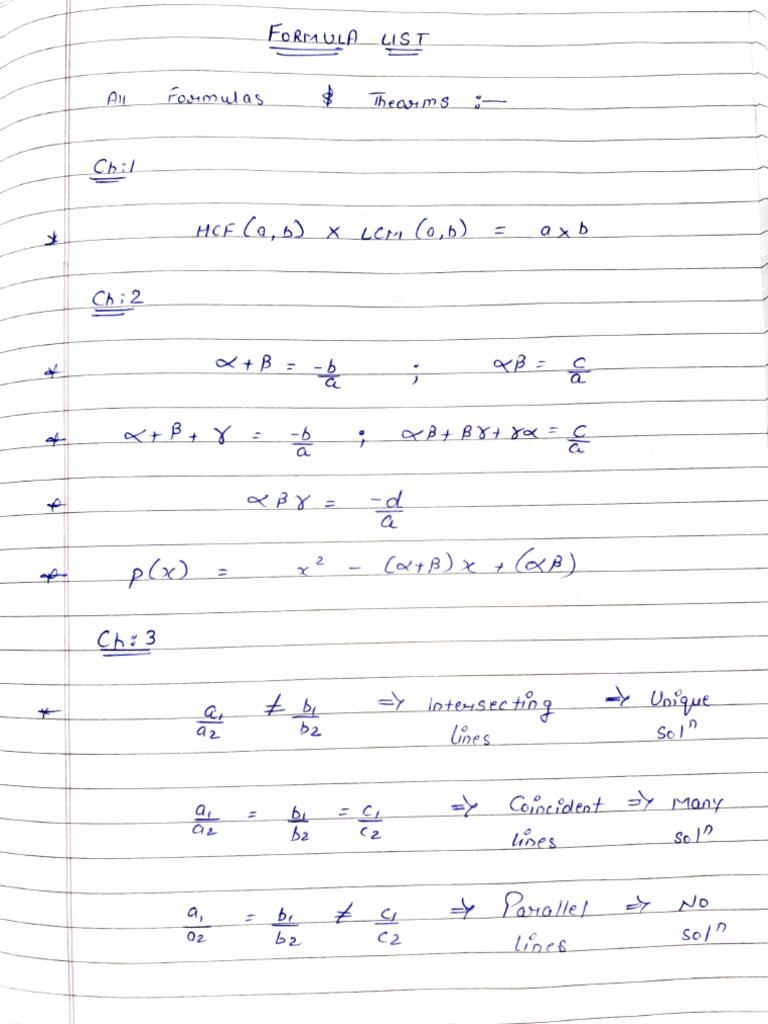 FORMULA LIST
All Formulas & Thearms :—
Ch:1
* HCF (a, b) × LCM (a, b) = a × b
Ch: 2
* α + β = -b/a ; αβ = c/a
* α + β + γ = -b/a ; αβ + βγ + γα = c/a
* αβγ = -d/a
* p(x) = x² - (α+β)x + (αβ)
Ch: 3
* a₁/a₂ ≠ b₁/b₂ ⇒ intersecting lines ⇒ Unique solⁿ
a₁/a₂ = b₁/b₂ = c₁/c₂ ⇒ Coincident lines ⇒ Many solⁿ
a₁/a₂ = b₁/b₂ ≠ c₁/c₂ ⇒ Parallel lines ⇒ No solⁿ